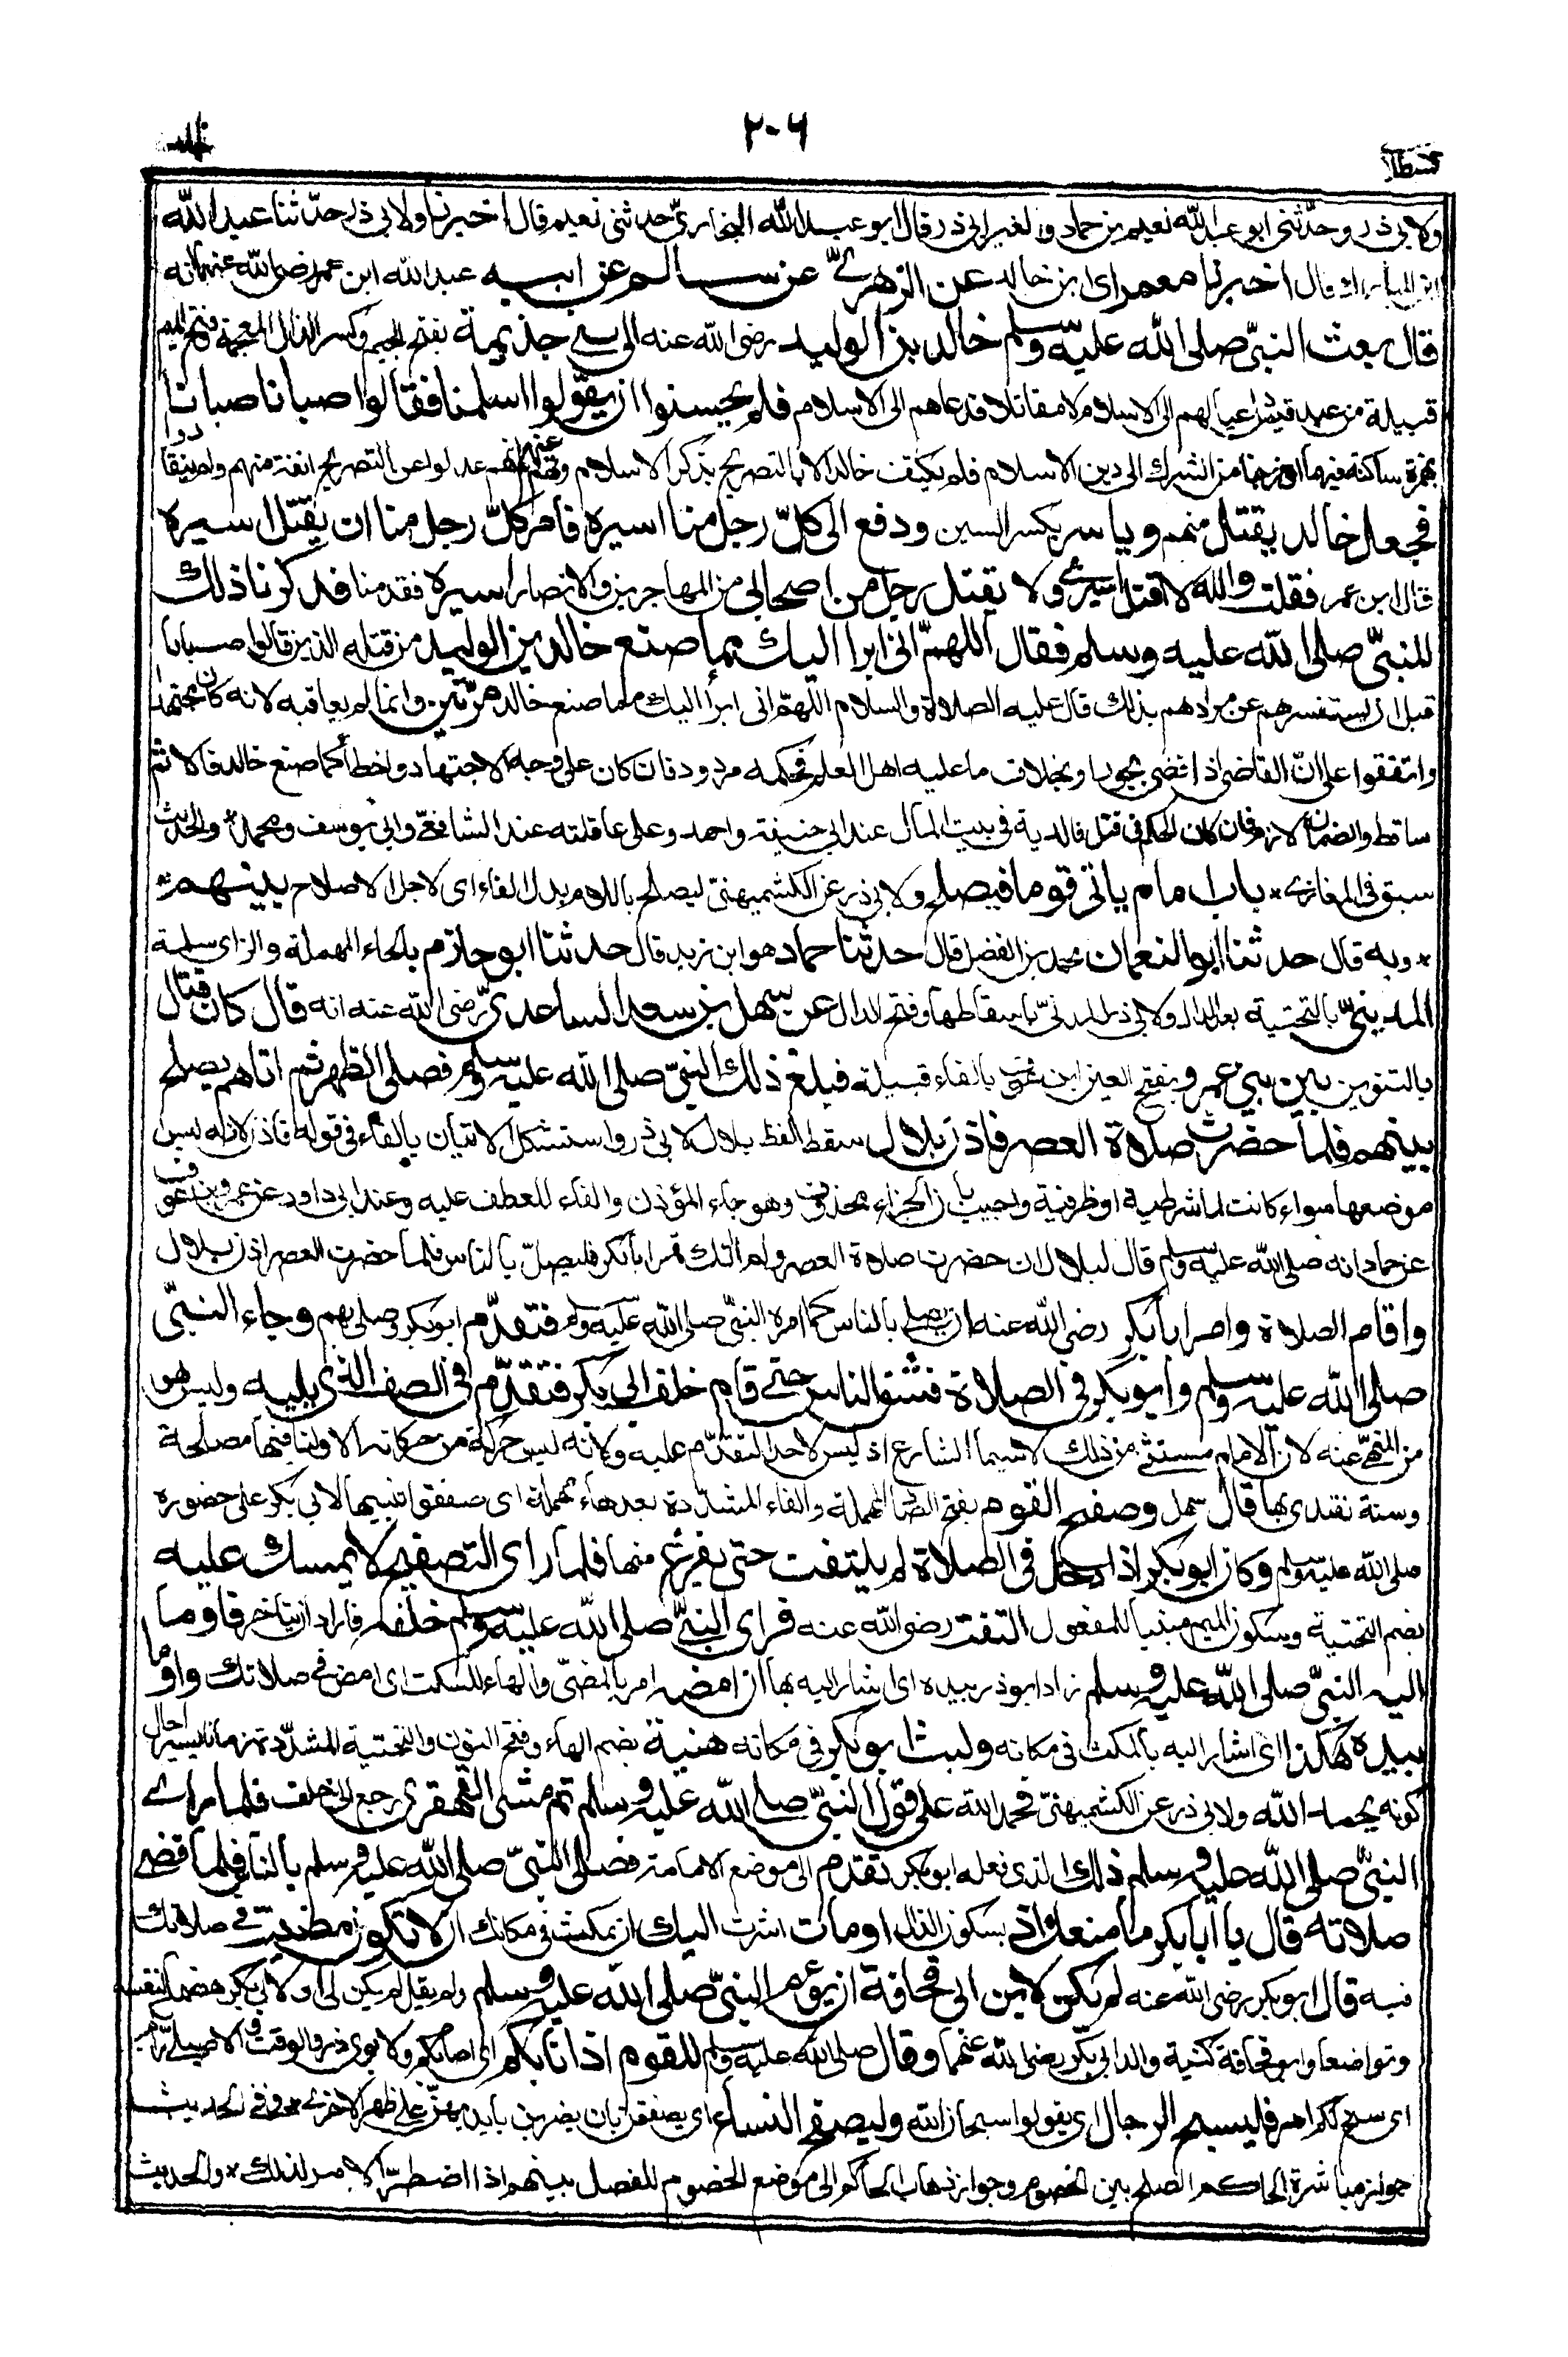 قسطلا
٢٠٦
ولابي ذر وحدّثني ابو عبد الله نعيم بن حماد ولغير ابي ذر قال ابو عبد الله البخاريّ حدثني نعيم قال اخبرنا ولابي ذر حدّثنا عبد الله
ابن المبارك قال اخبرنا معمر اي ابن خالد عن الزهريّ عن سالم عن ابيه عبد الله ابن عمر رضي الله عنهما انه
قال بعث النبيّ صلى الله عليه وسلم خالد بن الوليد رضي الله عنه الى بني جذيمة بفتح الجيم وكسر الذال المعجمة وفتح الميم
قبيلة من عبد قيس داعيا لهم الى الاسلام لا مقاتلا فدعاهم الى الاسلام فلم يحسنوا ان يقولوا اسلمنا فقالوا صبانا صبانا
بهمزة ساكنة فيهما اي خرجنا من الشرك الى دين الاسلام فلم يكتف خالد الا بالتصريح بذكر الاسلام وفهم عنهم انهم عدلوا عن التصريح انفة منهم ولم ينقادوا
فجعل خالد يقتل منهم وياسر بكسر السين ودفع الى كلّ رجل منا اسيره فامر كلّ رجل منا ان يقتل اسيره
قال ابن عمر فقلت والله لا اقتل اسيري ولا يقتل رجل من اصحابي من المهاجرين والانصار اسيره فقدمنا فذكرنا ذلك
للنبيّ صلى الله عليه وسلم فقال اللهمّ اني ابرا اليك مما صنع خالد بن الوليد من قتله الذين قالوا صبانا
قبل ان يستفسرهم عن مرادهم بذلك قال عليه الصلاة والسلام اللهمّ اني ابرأ اليك مما صنع خالد مرّتين وانما لم يعاقبه لانه كان مجتهدا
واتفقوا على انّ القاضي اذا قضى بجور او بخلاف ما عليه اهل العلم فحكمه مردود فان كان على وجه الاجتهاد واخطأ كما صنع خالد فالاثم
ساقط والضمان لازم فان كان الحكم في قتل فالدية في بيت المال عند ابي حنيفة واحمد وعلى عاقلته عند الشافعيّ وابي يوسف ومحمد * والحديث
سبق في المغازي * باب الامام ياتي قوما فيصلح ولابي ذر عن الكشميهنيّ ليصلح باللام بدل الفاء اي لاجل الاصلاح بينهم
* وبه قال حدثنا ابو النعمان محمد بن الفضل قال حدثنا حماد هو ابن زيد قال حدثنا ابو حازم بالحاء المهملة والزاي سلمة
المدينيّ بالتحتية بعد الدال ولابي ذر المدنيّ باسقاطها وفتح الدال عن سهل بن سعد الساعديّ رضي الله عنه انه قال كان قتال
بالتنوين بين بني عمرو بفتح العين ابن عوف بالفاء قبيلة فبلغ ذلك النبيّ صلى الله عليه وسلم فصلى الظهر ثم اتاهم يصلح
بينهم فلما حضرت صلاة العصر فاذن بلال سقط لفظ بلال لابي ذر واستشكل الاتيان بالفاء في قوله فاذن لانه ليس
موضعها سواء كانت لما شرطية او ظرفية واجيب بان الجزاء محذوف وهو جاء المؤذن والفاء للعطف عليه وعند ابي داود عن عمرو بن عوف
عن حماد انه صلى الله عليه وسلم قال لبلال ان حضرت صلاة العصر ولم اتك فمر ابا بكر فليصلّ بالناس فلما حضرت العصر اذن بلال
واقام الصلاة وامر ابا بكر رضي الله عنه ان يصلي بالناس كما امره النبيّ صلى الله عليه وسلم فتقدّم ابو بكر وصلى بهم وجاء النبيّ
صلى الله عليه وسلم وابو بكر في الصلاة فشق الناس حتى قام خلف ابي بكر فتقدّم في الصف الذي يليه وليس هو
من المنهيّ عنه لان الامام مستثنى من ذلك لاسيما الشارع اذ ليس لاحد التقدّم عليه ولانه ليس حركة من حركاته الا ولنا فيها مصلحة
وسنة نقتدي بها قال سهل وصفح القوم بفتح الصاد المهملة والفاء المشدّدة بعدها حاء مهملة اي صفقوا تنبيها لابي بكر على حضوره
صلى الله عليه وسلم وكان ابو بكر اذا دخل في الصلاة لم يلتفت حتى يفرغ منها فلما راى التصفيح لا يمسك عليه
بضم التحتية وسكون الميم مبنيا للمفعول التفت رضي الله عنه فراى النبيّ صلى الله عليه وسلم خلفه فاراد ان يتاخر فاومأ
اليه النبيّ صلى الله عليه وسلم زاد ابو ذر بيده اي اشار اليه بها ان امضه امر بالمضيّ والهاء للسكت اي امض في صلاتك واومأ
بيده هكذا اي اشار اليه بالمكث في مكانه ولبث ابو بكر في مكانه هنية بضم الهاء وفتح النون والتحتية المشدّدة زمانا يسيرا حال
كونه يحمد الله ولابي ذر عن الكشميهنيّ فحمد الله على قول النبيّ صلى الله عليه وسلم ثم مشى القهقرى رجع الى خلف فلما راى
النبيّ صلى الله عليه وسلم ذلك الذي فعله ابو بكر تقدم الى موضع الامامة فصلى النبيّ صلى الله عليه وسلم بالناس فلما قضى
صلاته قال يا ابا بكر ما منعك اذ بسكون الذال اومات اشرت اليك ان تمكث في مكانك ان لا تكون مضيت في صلاتك
فيه قال ابو بكر رضي الله عنه لم يكن لابن ابي قحافة ان يؤم النبيّ صلى الله عليه وسلم ولم يقل لم يكن لي او لابي بكر هضما لنفسه
وتواضعا وابو قحافة كنية والد ابي بكر رضي الله عنهما وقال صلى الله عليه وسلم للقوم اذا نابكم اي اصابكم ولابوي ذر والوقت والاصيلي
اي سنح لكم امر فليسبح الرجال اي يقولوا سبحان الله وليصفح النساء اي يصفقن بان يضربن بايديهنّ على ظهر الاخرى * وفي الحديث
جواز مباشرة الحاكم الصلح بين الخصوم وجواز ذهاب الحاكم الى موضع الخصوم للفصل بينهم اذا اضطرّ الامر لذلك * والحديث